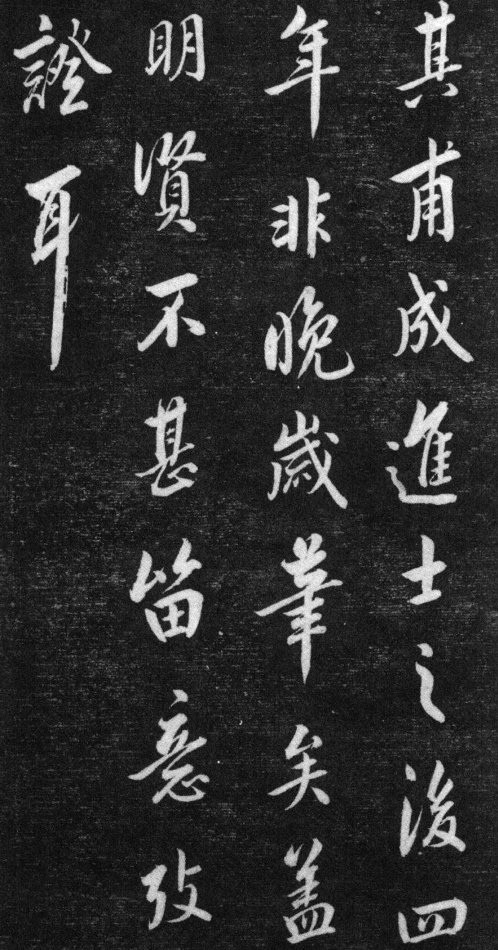 其甫成進士之後四
年非晚歲筆矣蓋
明賢不甚留意攷
證耳